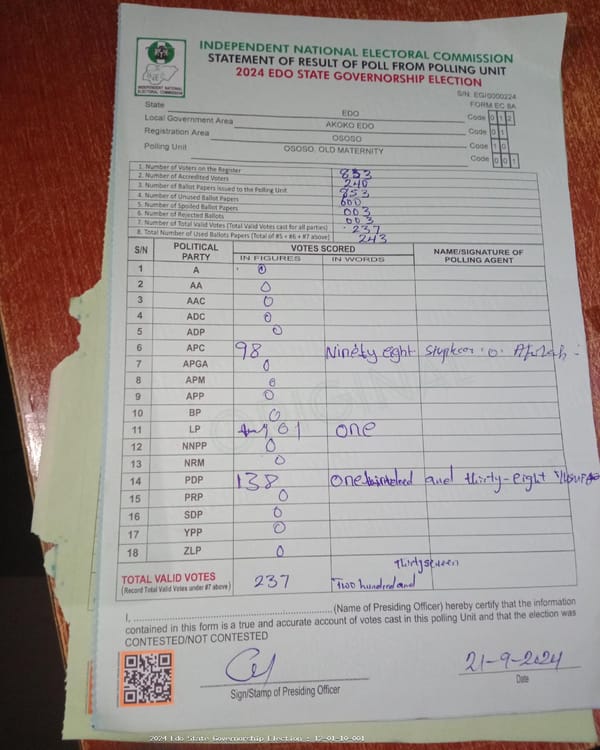 INDEPENDENT NATIONAL ELECTORAL COMMISSION
STATEMENT OF RESULT OF POLL FROM POLLING UNIT
2024 EDO STATE GOVERNORSHIP ELECTION
INEC
INDEPENDENT NATIONAL
ELECTORAL COMMISSION
S/N: EG/0000224
FORM EC 8A
State EDO Code 0 1 2
Local Government Area AKOKO EDO Code 0 1
Registration Area OSOSO Code 1 0
Polling Unit OSOSO, OLD MATERNITY Code 0 0 1
1. Number of Voters on the Register 853
2. Number of Accredited Voters 240
3. Number of Ballot Papers Issued to the Polling Unit 853
4. Number of Unused Ballot Papers 600
5. Number of Spoiled Ballot Papers 003
6. Number of Rejected Ballots 003
7. Number of Total Valid Votes (Total Valid Votes cast for all parties) 237
8. Total Number of Used Ballots Papers (Total of #5 + #6 + #7 above) 243
S/N POLITICAL PARTY VOTES SCORED NAME/SIGNATURE OF POLLING AGENT
IN FIGURES IN WORDS
1 A 0
2 AA 0
3 AAC 0
4 ADC 0
5 ADP 0
6 APC 98 Ninety eight
7 APGA 0
8 APM 0
9 APP 0
10 BP 0
11 LP 01 one
12 NNPP 0
13 NRM 0
14 PDP 138 One hundred and thirty-eight
15 PRP 0
16 SDP 0
17 YPP 0
18 ZLP 0
TOTAL VALID VOTES 237 Two hundred and thirty seven
(Record Total Valid Votes under #7 above)
I, ........ (Name of Presiding Officer) hereby certify that the information
contained in this form is a true and accurate account of votes cast in this polling Unit and that the election was
CONTESTED/NOT CONTESTED
21-9-2024
Sign/Stamp of Presiding Officer Date
2024 Edo State Governorship Election : 12-01-10-001